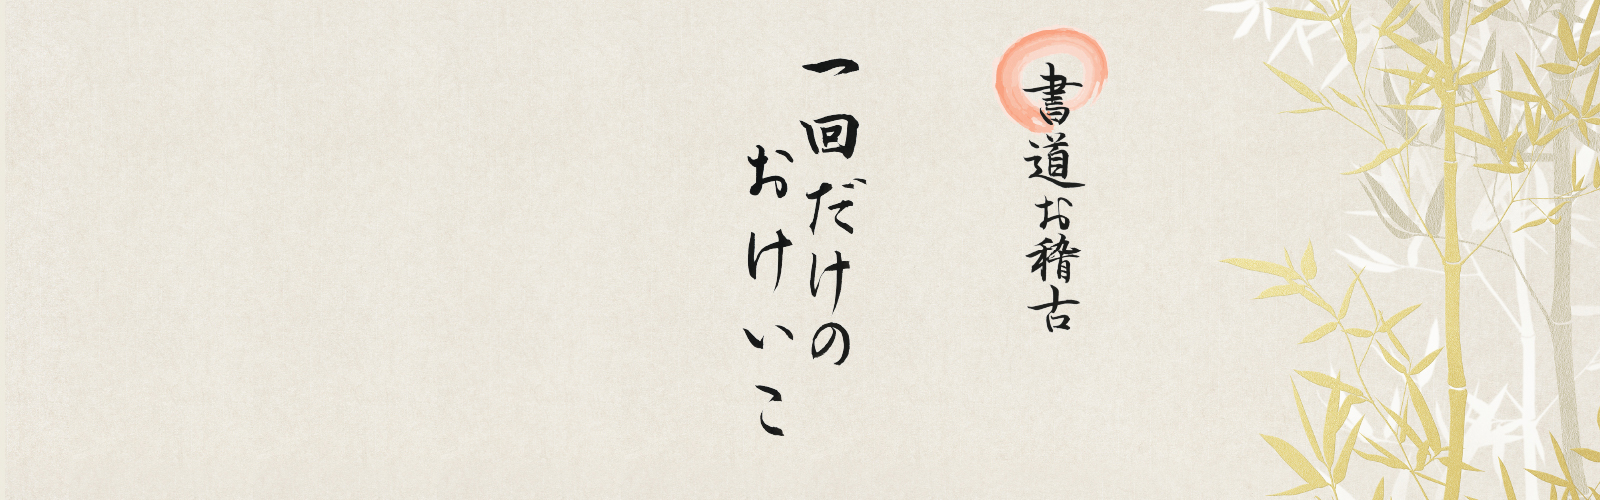 書道お稽古
一回だけの
おけいこ